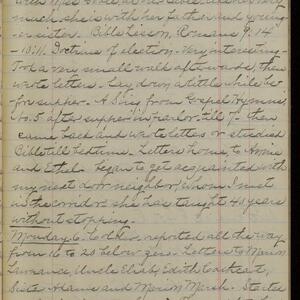 much she is with her father and young-
er sister. Bible lesson, Romans 9:14
-10:11. Doctrine of election. Very interesting.
Took a very small walk afterwards, then
wrote letters. Lay down a little while be-
fore supper. A Sing from Gospel Hymns,
No. 5 after supper in Parlor till 7. then
came back and wrote letters or studied
Bible till bedtime. Letters home to Annie
and Ethel. began to get acquainted with
my next door neighbor, whom I met
in the corridor. she has taught 40 years
without stopping.
Monday 6. Cold here, reported all the way
from 16 to 25 below zero. Letters to Marion
Lawrance, Uncle Eli, Edith
Sister Adams and Marion March. Started